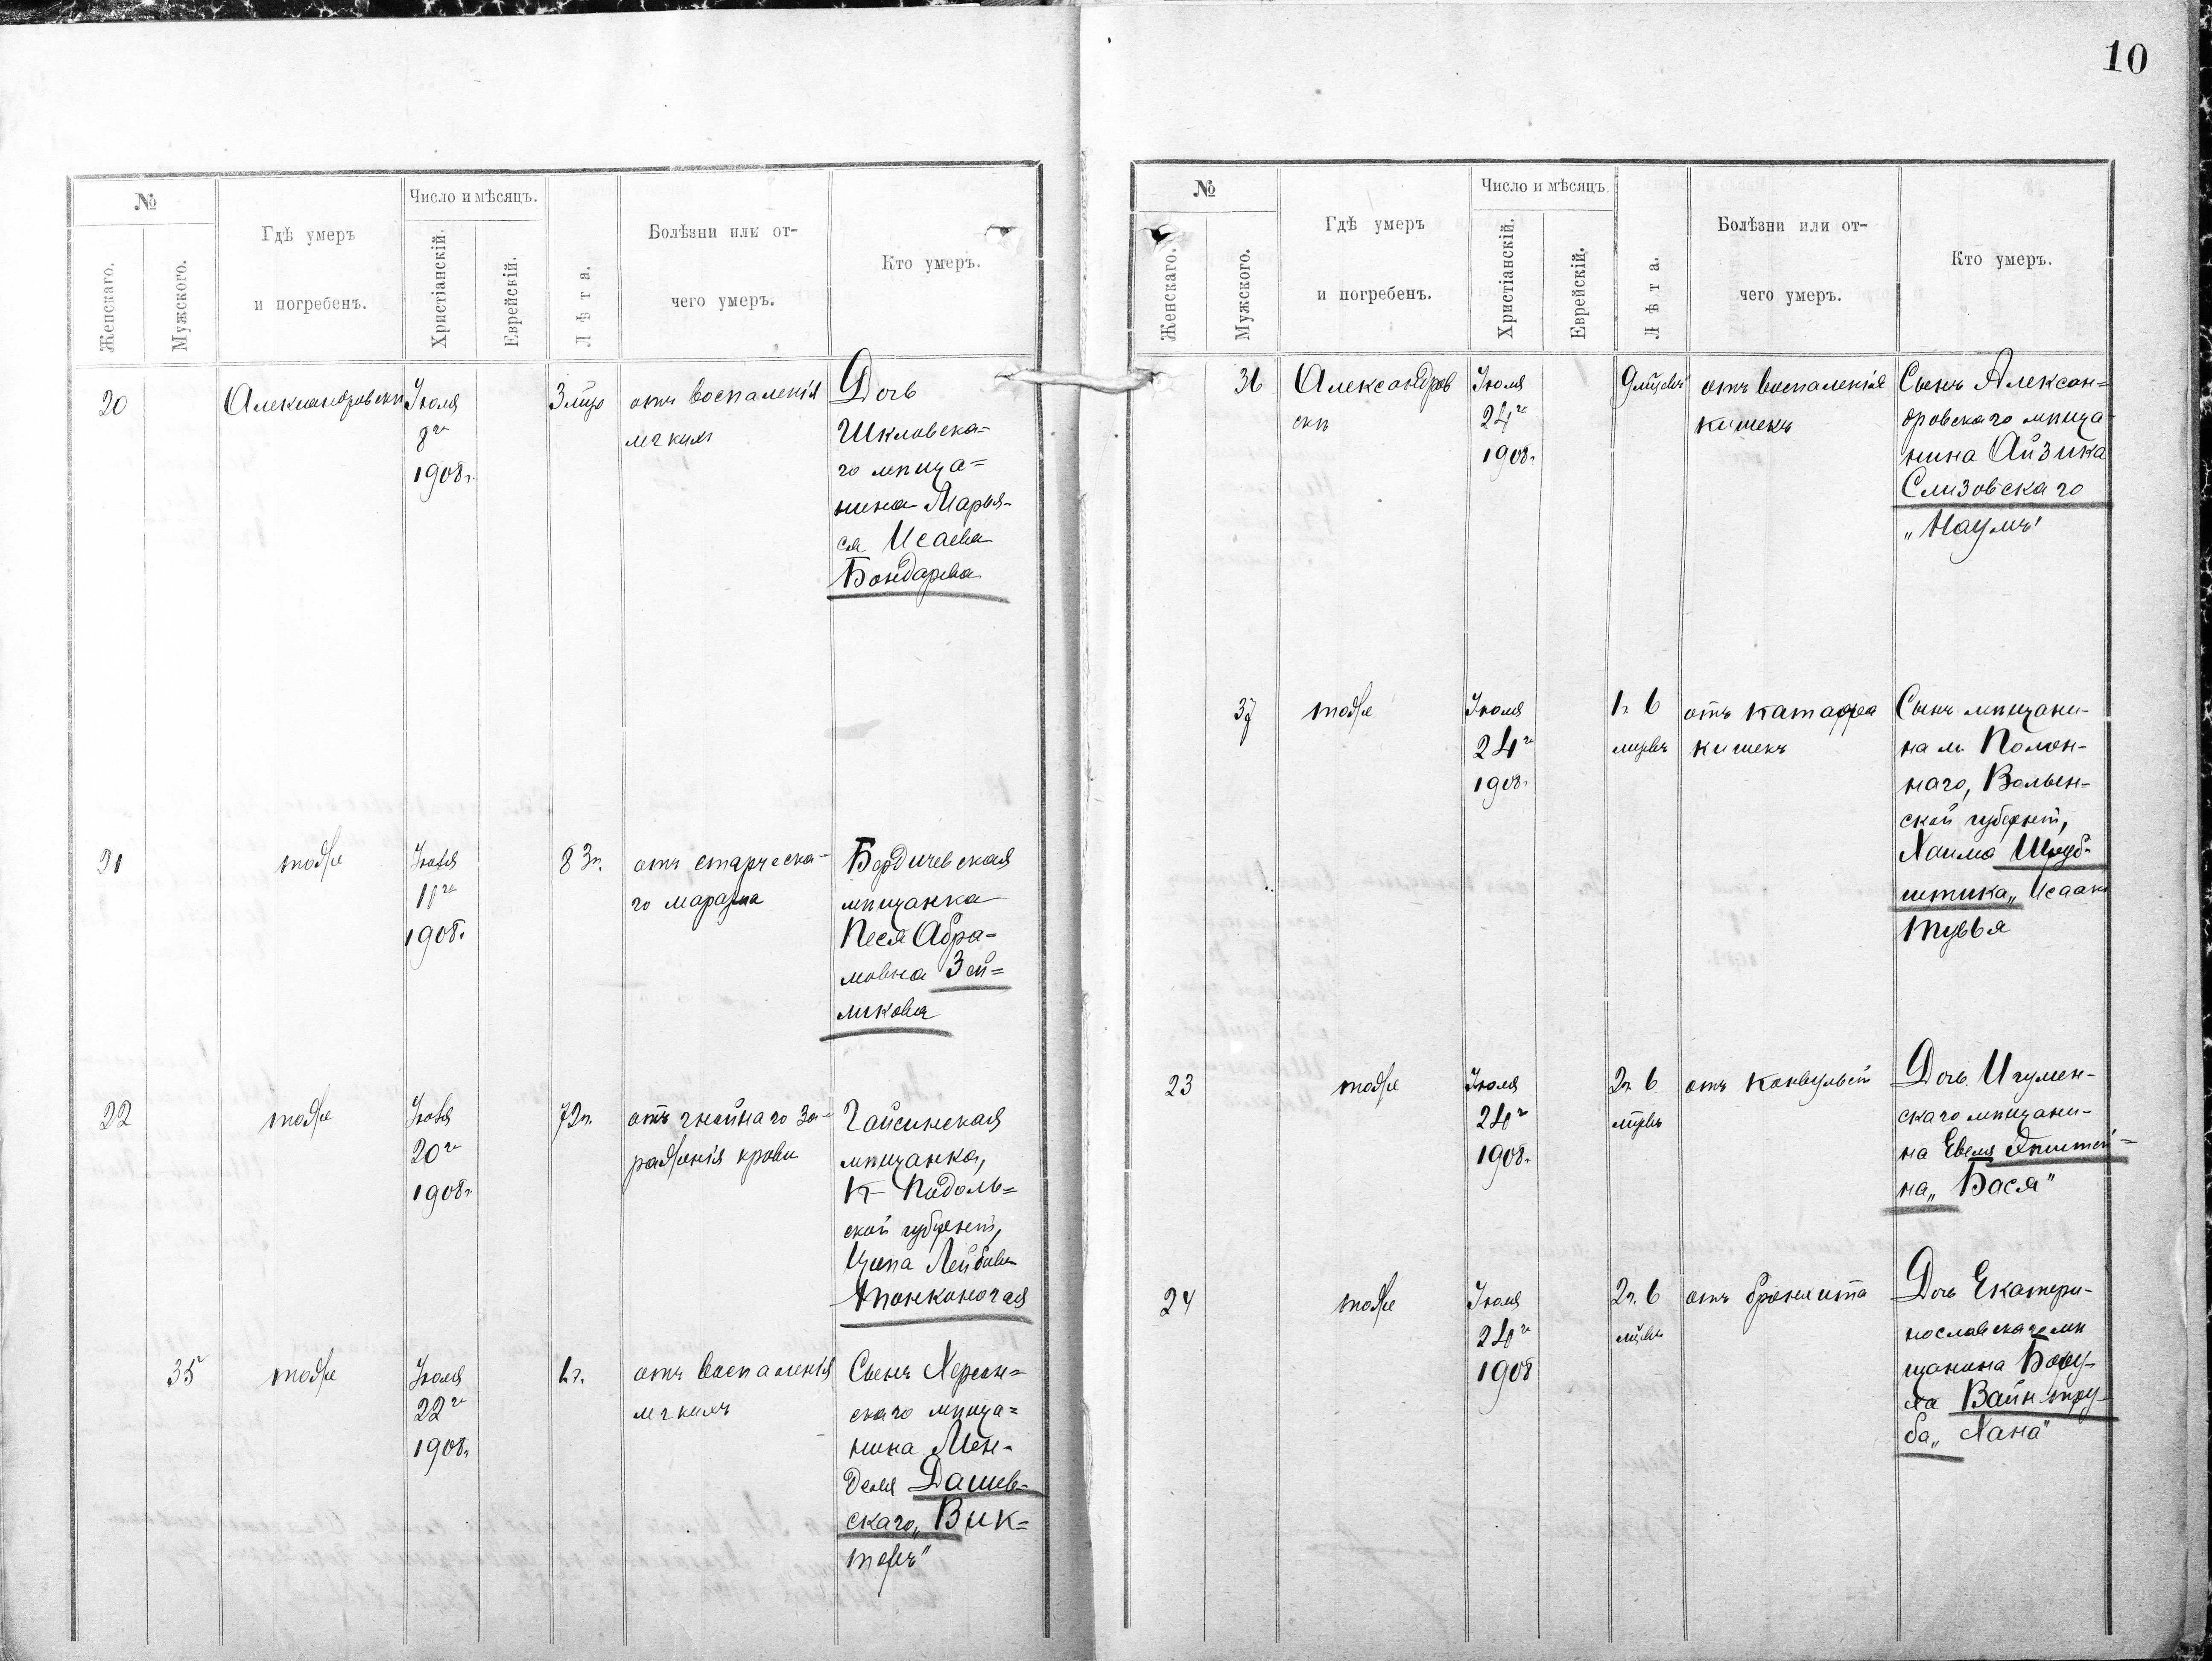 10
№
Женскаго.
Мужского.
Гдѣ умеръ
и погребенъ.
Число и мѣсяцъ.
Христіанскій.
Еврейскій.
Лѣта.
Болѣзни или от-
чего умеръ.
Кто умеръ.
20
Александровскъ
Іюля
8го
1908г.
3 мцо
отъ воспаленія
легкихъ
Дочь
Шкловска=
го мѣща=
нина Марья-
ся Исаева
Бондарева
21
тоже
Іюля
1908г.
83г.
отъ старческа-
го маразма
Бердичевская
мѣщанка
Песя Абра-
мовна Зей=
ликова
22
тоже
Іюля
20го
1908г.
72г.
отъ гнойнаго за-
раженія крови
Гайсинская
мѣщанка,
К- Подоль=
ской губерніи,
Ципа Лейбовн
Тонконогая
35
тоже
Іюля
22го
1908г.
1г.
отъ воспаленія
легкихъ
Сынъ Херсон=
скаго мѣща=
нина Мен-
деля Дашев-
скаго „Вик=
торъ"
№
Женскаго.
Мужского.
Гдѣ умеръ
и погребенъ.
Число и мѣсяцъ.
Христіанскій.
Еврейскій.
Лѣта.
Болѣзни или от-
чего умеръ.
Кто умеръ.
36
Александров
скъ
Іюля
24го
1908г.
9 мцевъ
отъ воспаленія
кишекъ
Сынъ Алексан=
дровскаго мѣща-
нина Айзика
Слизовскаго
„Наумъ"
37
тоже
Іюля
24го
1908г.
1г. 6
мцевъ
отъ катарра
кишекъ
Сынъ мѣщани-
на м. Полон-
наго, Волын-
ской губерніи,
Хаима Шруб-
штика „Исаакъ
Тувья
23
тоже
Іюля
24го
1908г.
2г. 6
мцевъ
отъ конвульсій
Дочь Игумен-
скаго мѣщани-
на Евеля Эпштей=
на „Бася"
24
тоже
Іюля
24го
1908
2г. 6
мцевъ
отъ бронхита
Дочь Екатери-
нославскаго мѣ
щанина Бору-
ха Вайнтру-
ба „Хана"